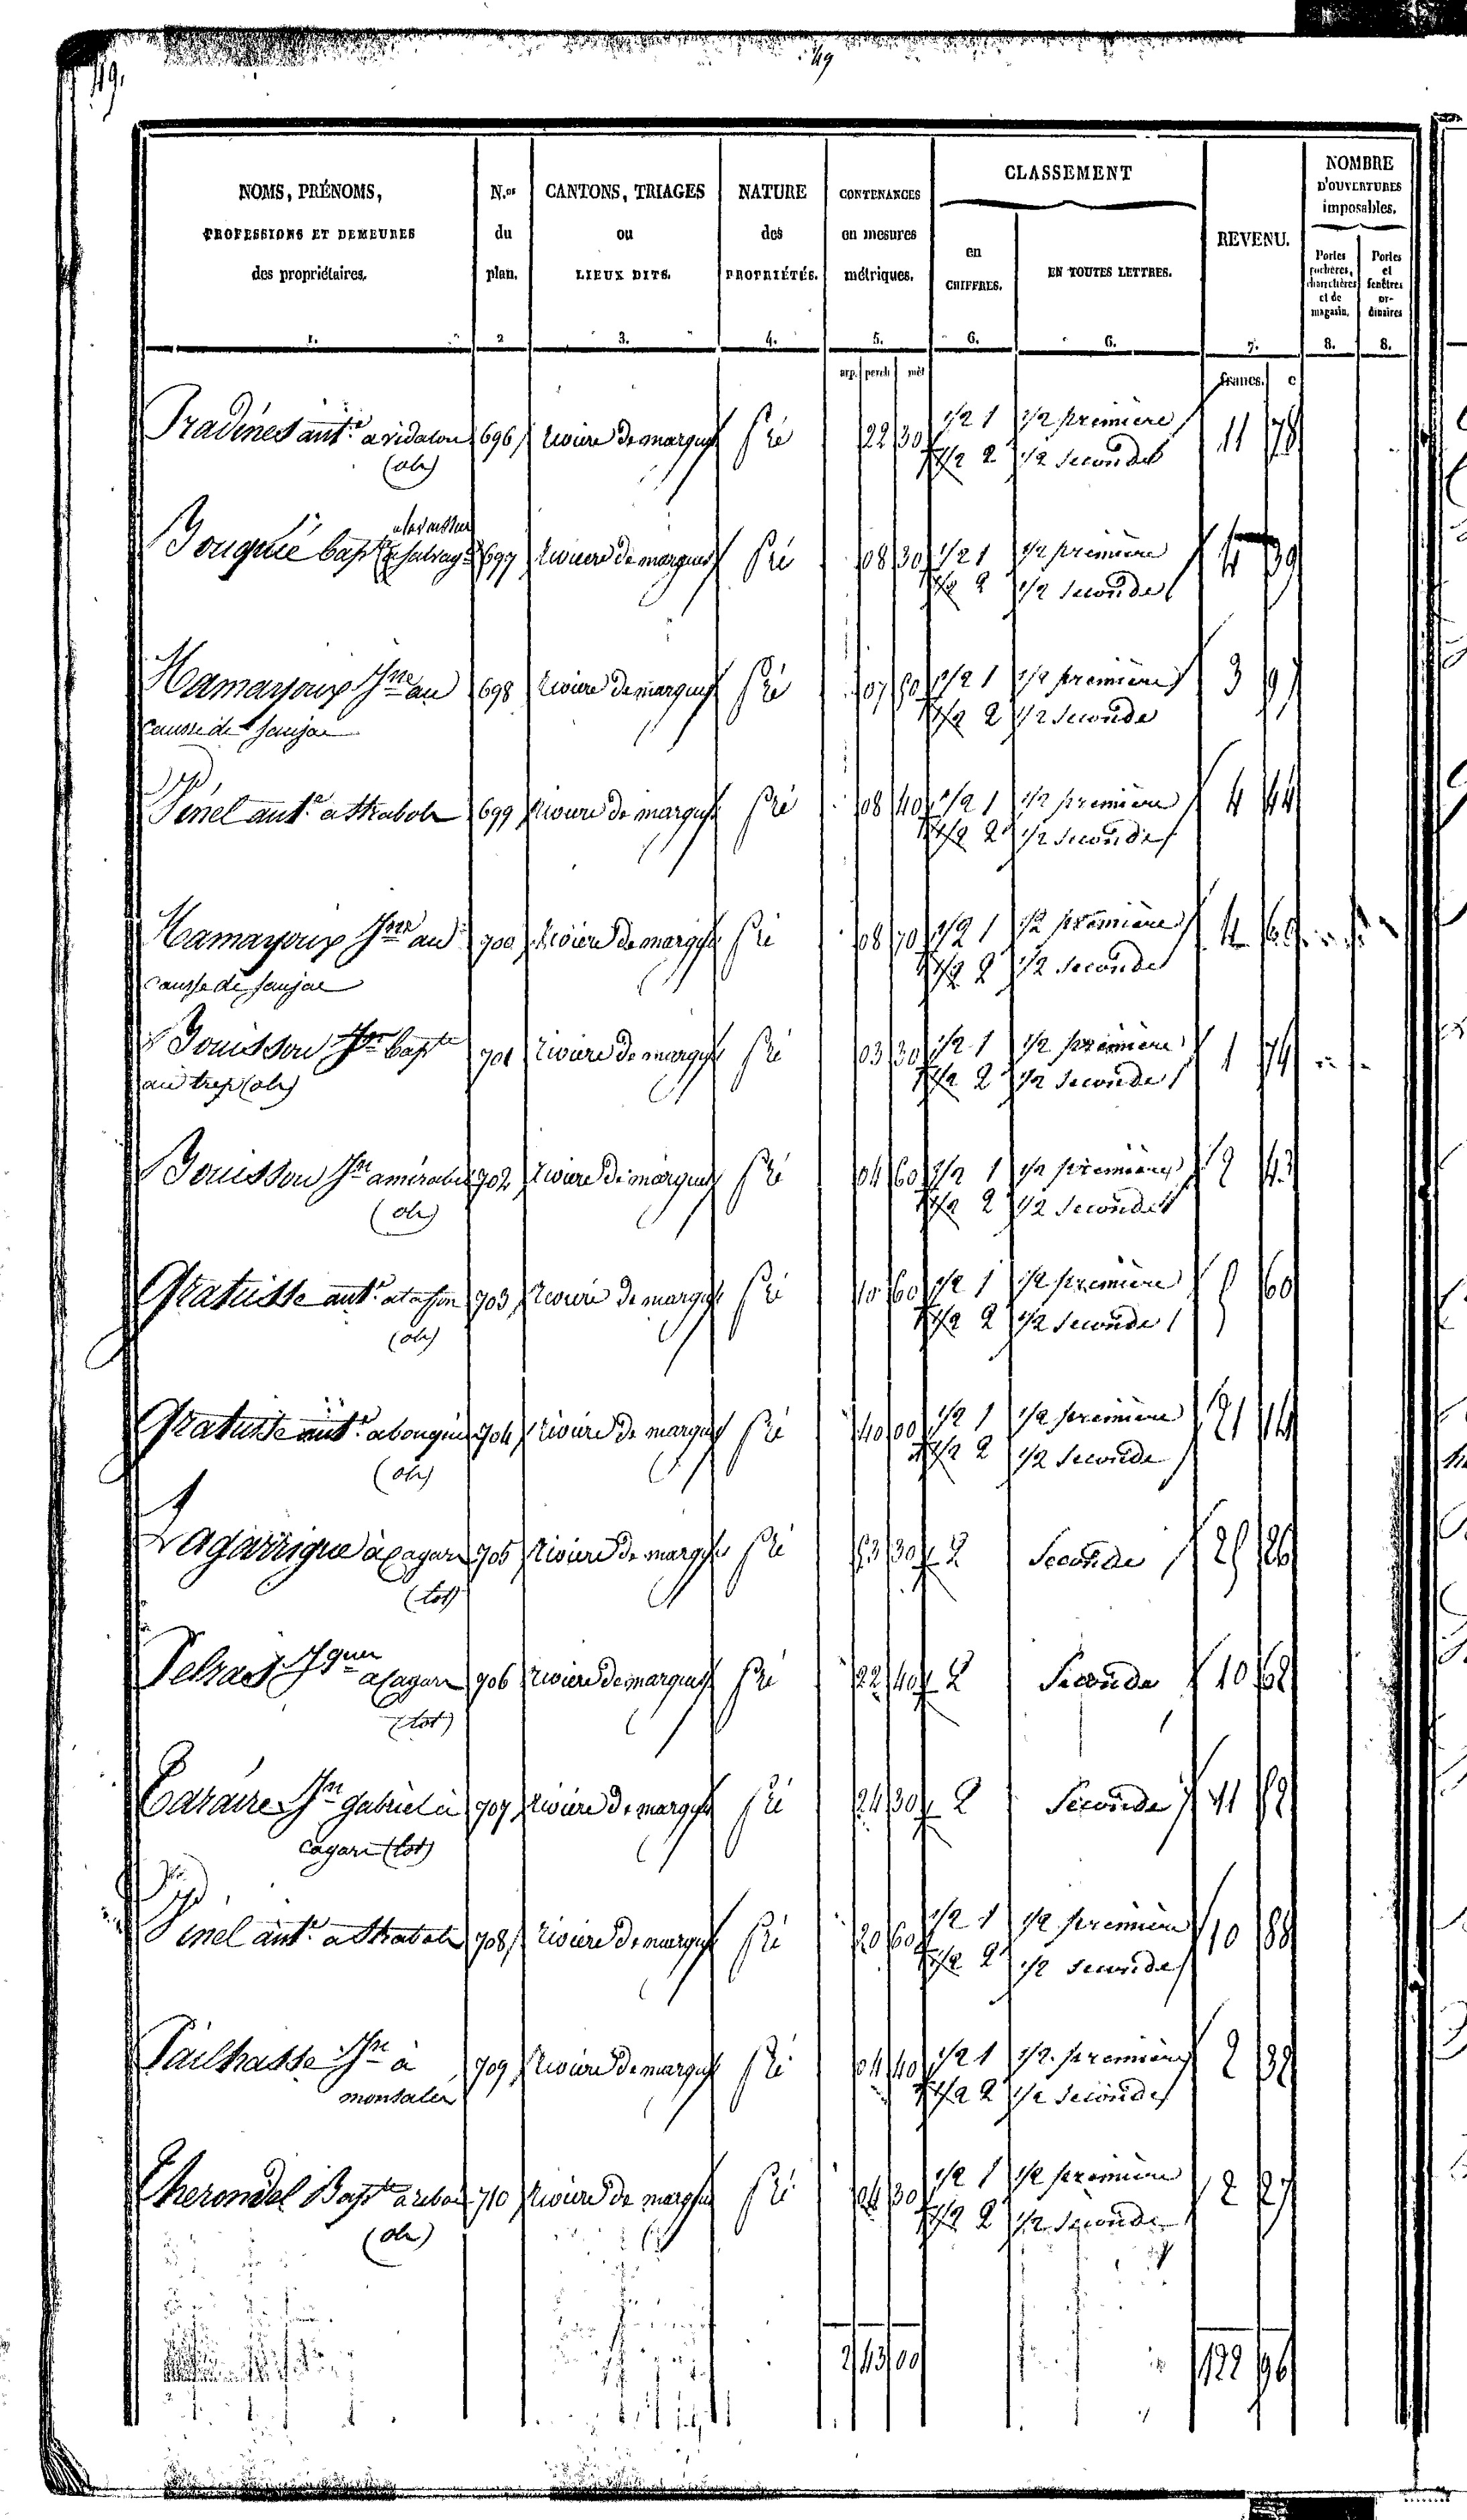 49.
49
NOMS, PRÉNOMS,
PROFESSIONS ET DEMEURES
des propriétaires.
1.
N.os
du
plan.
2
CANTONS, TRIAGES
ou
LIEUX DITS.
3.
NATURE
des
PROPRIÉTÉS.
4.
CONTENANCES
en mesures
métriques.
5.
CLASSEMENT
en
CHIFFRES.
6.
EN TOUTES LETTRES.
6.
REVENU.
7.
NOMBRE
D'OUVERTURES
imposables.
Portes
cochères,
charretières
et de
magasin.
8.
Portes
et
fenêtres
or-
dinaires
8.
arp. perch. mèt
francs. c
Pradines ant.e a vidalou 696 riviere de marques Pré 22 30 1/2 1 1/2 première 11 78
(olt) 1/2 2 1/2 seconde
Bouquié bapte 697 riviere de marques Pré 08 30 1/2 1 1/2 première 4 39
1/2 2 1/2 seconde
Mamayoux Jne au 698 riviere de marques Pré 07 50 1/2 1 1/2 première 3 97
causse de saujac 1/2 2 1/2 seconde
Pinel ant.e 699 riviere de marques Pré 08 40 1/2 1 1/2 première 4 44
1/2 2 1/2 seconde
Mamayoux Jne au 700 riviere de marques Pré 08 70 1/2 1 1/2 première 4 60
causse de saujac 1/2 2 1/2 seconde
Bouisson Jn bapte 701 riviere de marques Pré 03 30 1/2 1 1/2 première 1 74
au trep (olt) 1/2 2 1/2 seconde
Bouisson Jne 702 riviere de marques Pré 04 60 1/2 1 1/2 première 2 43
(olt) 1/2 2 1/2 seconde
Gratusse ant.e 703 riviere de marques Pré 10 60 1/2 1 1/2 première 5 60
(olt) 1/2 2 1/2 seconde
Gratusse ant.e 704 riviere de marques Pré 40 00 1/2 1 1/2 première 21 14
(olt) 1/2 2 1/2 seconde
Lagarrigue à Cajarc 705 riviere de marques Pré 53 30 2 Seconde 25 26
(lot)
a Cajarc 706 riviere de marques Pré 22 40 2 Seconde 10 62
(lot)
Jne gabriel à 707 riviere de marques Pré 24 30 2 Seconde 11 52
cajarc (lot)
Pinel ant.e 708 riviere de marques Pré 20 60 1/2 1 1/2 première 10 88
1/2 2 1/2 seconde
Pailhasse Jne à 709 riviere de marques Pré 04 40 1/2 1 1/2 première 2 32
montsalès 1/2 2 1/2 seconde
Therondel Bapte 710 riviere de marques Pré 04 30 1/2 1 1/2 première 2 27
(olt) 1/2 2 1/2 seconde
2 43 00 122 96